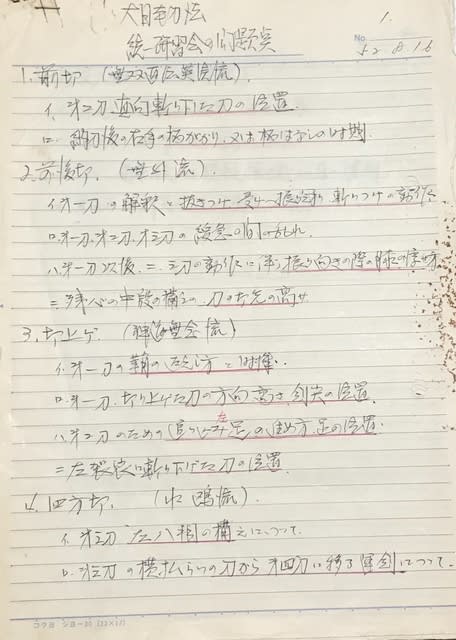 大日本刀法
統一研習会の問題点
1.
No
52.8.16
1. 前切 (無双直伝英信流).
イ. オ二刀 真向斬り下した刀の位置.
ロ. 納刀後の右手の柄がかり、又は柄はなしの時期.
2. 前後切. (無外流).
イ. オ一刀の解釈と抜きつけ 受け 振り冠り 斬りつけの動作.
ロ. オ一刀、オ二刀、オ三刀の緩急の間
ハ. オ一刀次後、二、三刀の動作に 振り向きの際の
ニ. 残心の中段の構えの刀の切先の高サ
3. 切上ゲ. (神道無念流)
イ. オ一刀の鞘の返し方と時機.
ロ. オ一刀. 切り上げた刀の方向 高さ 剣尖の位置.
ハ. オ二刀のための 左足の 足の位置.
ニ. 左袈裟に斬り下げた刀の位置.
4. 四方切. (水鷗流).
イ. オ三刀 左八相の構えについて.
ロ. オ三刀の横払いの刀から オ四刀に移る について.
コクヨ